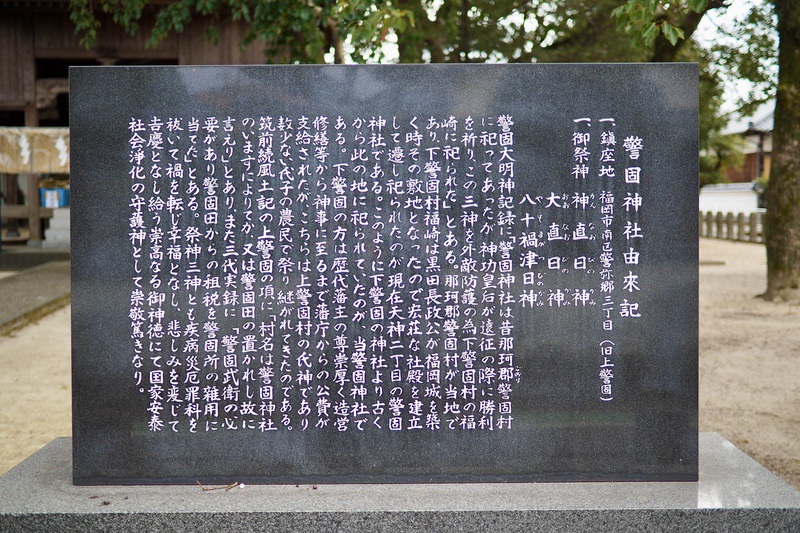 警固神社由來記
一、鎮座地　福岡市南区警弥郷三丁目（旧上警固）
一、御祭神　神直日神
大直日神
八十禍津日神
警固大明神記録に「警固神社は昔那珂郡警固村
に祀ってあったが神功皇后が遠征の際に勝利
を祈り、この三神を外敵防護の為下警固村の福
崎に祀られた」とある。那珂郡警固村が当地で
あり、下警固村福崎は黒田長政公が福岡城を築
く時その敷地となったので宏荘な社殿を建立
して遷し祀られたのが現在天神二丁目の警固
神社である。このように下警固の神社より古く
から此の地に祀られていたのが、当警固神社で
ある。下警固の方は歴代藩主の尊崇厚く造営
修繕等から神事に至るまで藩庁からの公費が
支給されたが、こちらは上警固村の氏神であり
数少ない氏子の農民で祭り継がれてきたのである。
筑前続風土記の上警固の項に、村名は警固神社
のいますによりてか、又は警固田の置かれし故に
言えりとあり、また三代実録に「警固武衛の必
要があり警固田からの租税を警固所の雜用に
当てた」とある。祭神三神とも疾病災厄罪科を
祓いて禍を転じ幸福となし、悲しみを変じて
吉慶となし給う崇高なる御神徳にて国家安泰
社会浄化の守護神として崇敬篤きなり。